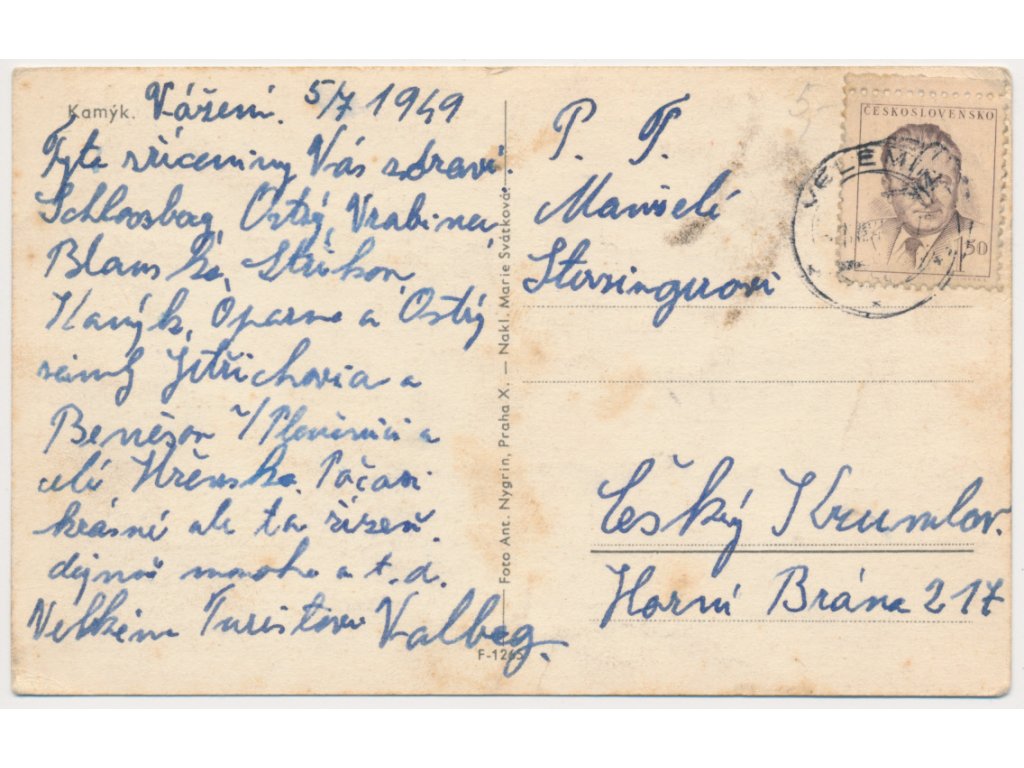 Kamýk. Vážení. 5/7 1949
Tyto zříceniny Vás zdraví:
Schlossberg, Ostrý, Vrabinec,
Blansko, Střekov,
Kamýk, Oparno a Ostrý
Jetřichovia a
Benešov n/Ploučnicí a
celé Hřensko. Počasí
krásné ale ta žízeň.
dojmů mnoho a t.d.
Velkému Turistovi Valbeg.
F-1265
Foto Ant. Nygrin, Praha X. — Nakl. Marie Svátková.
P. T.
Manželé
Stersingerovi
Český Krumlov.
Horní Brána 217
5-
ČESKOSLOVENSKO
1 50
VELEMÍN